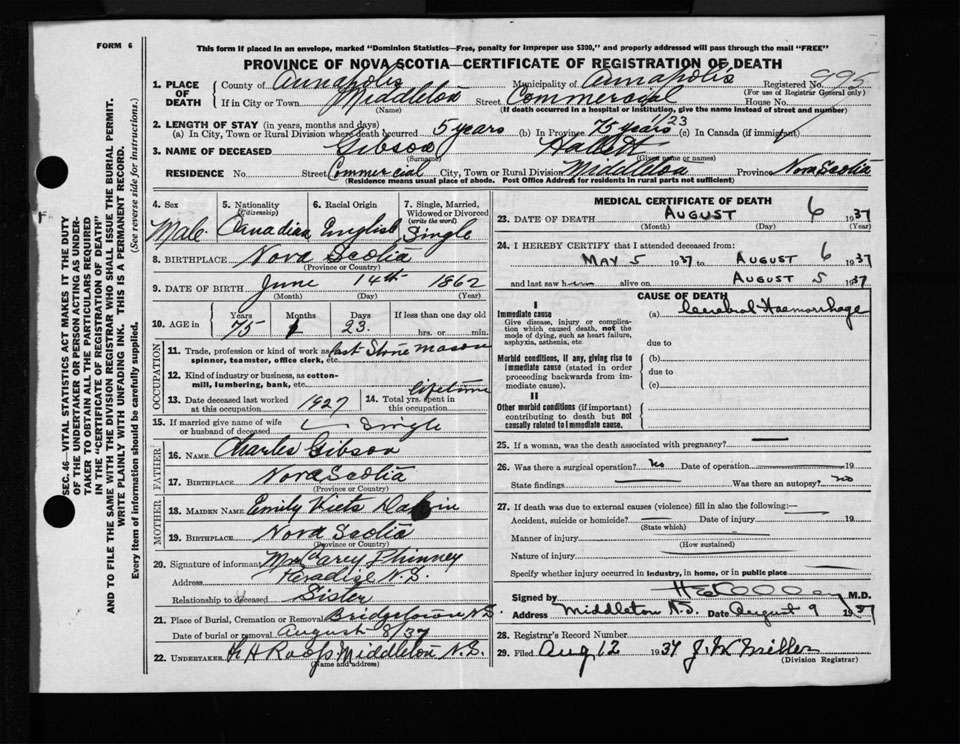 FORM 6
This form if placed in an envelope, marked "Dominion Statistics—Free, penalty for improper use $300," and properly addressed will pass through the mail "FREE"
PROVINCE OF NOVA SCOTIA—CERTIFICATE OF REGISTRATION OF DEATH
1. PLACE OF DEATH
County of Annapolis Municipality of Annapolis Registered No. 995
(For use of Registrar General only)
If in City or Town Middleton Street Commercial House No.
(Name) (If death occurred in a hospital or institution, give the name instead of street and number)
2. LENGTH OF STAY (in years, months and days)
(a) In City, Town or Rural Division where death occurred 5 years (b) In Province 75 years 1/23 (c) In Canada (if immigrant)
3. NAME OF DECEASED Gibson
(Surname) (Given name or names)
RESIDENCE No. Street Commercial City, Town or Rural Division Middleton Province Nova Scotia
(Residence means usual place of abode. Post Office Address for residents in rural parts not sufficient)
SEC. 46—VITAL STATISTICS ACT MAKES IT THE DUTY
OF THE UNDERTAKER OR PERSON ACTING AS UNDER-
TAKER TO OBTAIN ALL THE PARTICULARS REQUIRED
IN THE "CERTIFICATE OF REGISTRATION OF DEATH"
AND TO FILE THE SAME WITH THE DIVISION REGISTRAR WHO SHALL ISSUE THE BURIAL PERMIT.
WRITE PLAINLY WITH UNFADING INK. THIS IS A PERMANENT RECORD.
Every item of information should be carefully supplied. (See reverse side for instructions.)
4. Sex 5. Nationality (Citizenship) 6. Racial Origin 7. Single, Married, Widowed or Divorced (write the word)
Male Canadian English Single
8. BIRTHPLACE Nova Scotia
(Province or Country)
9. DATE OF BIRTH June 14th 1862
(Month) (Day) (Year)
10. AGE in Years Months Days If less than one day old
75 1 23 hrs. or min.
OCCUPATION
11. Trade, profession or kind of work as Stone Mason
spinner, teamster, office clerk, etc.
12. Kind of industry or business, as cotton-
mill, lumbering, bank, etc.
13. Date deceased last worked at this occupation 1927 14. Total yrs. spent in this occupation lifetime
15. If married give name of wife or husband of deceased Single
FATHER
16. NAME Charles Gibson
17. BIRTHPLACE Nova Scotia
(Province or Country)
MOTHER
18. MAIDEN NAME Emily
19. BIRTHPLACE Nova Scotia
(Province or Country)
20. Signature of informant Mrs Phinney
Address Paradise N.S.
Relationship to deceased Sister
21. Place of Burial, Cremation or Removal Bridgetown N.S.
Date of burial or removal August 8/37
22. UNDERTAKER Middleton N.S.
(Name and address)
MEDICAL CERTIFICATE OF DEATH
23. DATE OF DEATH August 6 1937
(Month) (Day) (Year)
24. I HEREBY CERTIFY that I attended deceased from:
May 5 1937 to August 6 1937
and last saw him alive on August 5 1937
CAUSE OF DEATH
I
Immediate cause (a) Cerebral Haemorrhage
Give disease, injury or complica-
tion which caused death, not the
mode of dying, such as heart failure,
asphyxia, asthenia, etc. due to
Morbid conditions, if any, giving rise to (b)
immediate cause (stated in order due to
proceeding backwards from im-
mediate cause). (c)
II
Other morbid conditions (if important)
contributing to death but not
causally related to immediate cause.
25. If a woman, was the death associated with pregnancy?
26. Was there a surgical operation? No Date of operation 19
State findings Was there an autopsy? no
27. If death was due to external causes (violence) fill in also the following:—
Accident, suicide or homicide? Date of injury 19
(State which)
Manner of injury
(How sustained)
Nature of injury
Specify whether injury occurred in industry, in home, or in public place
Signed by M.D.
Address Middleton N.S. Date August 9 1937
28. Registrar's Record Number
29. Filed Aug 12 1937 J. W. Miller
(Division Registrar)